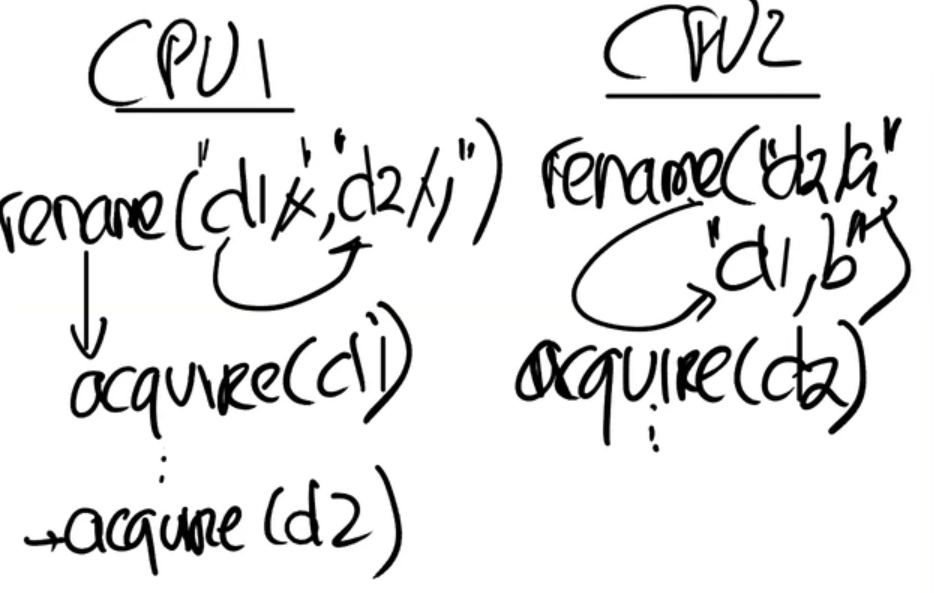 CPU1
rename("d1/x","d2/y")
acquire(d1)
⋮
→acquire(d2)
CPU2
rename("d2/a"
"d1,b")
acquire(d2)
⋮